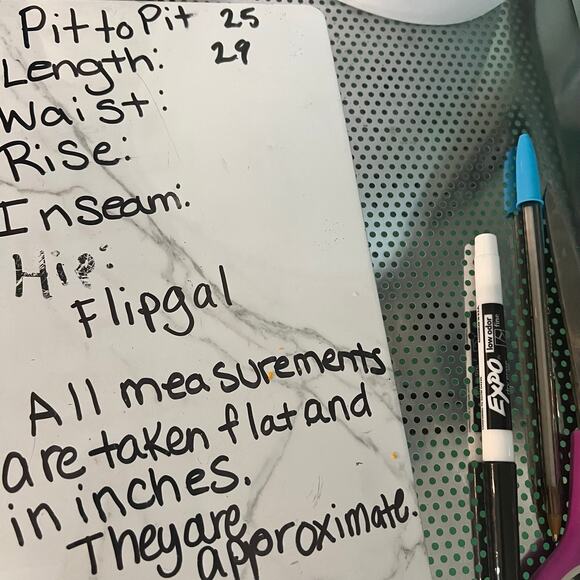 Pit to Pit 25
Length: 29
Waist:
Rise:
Inseam:
Hip:
Flipgal
All measurements
are taken flat and
in inches.
They are
approximate.
EXPO
low odor
fine